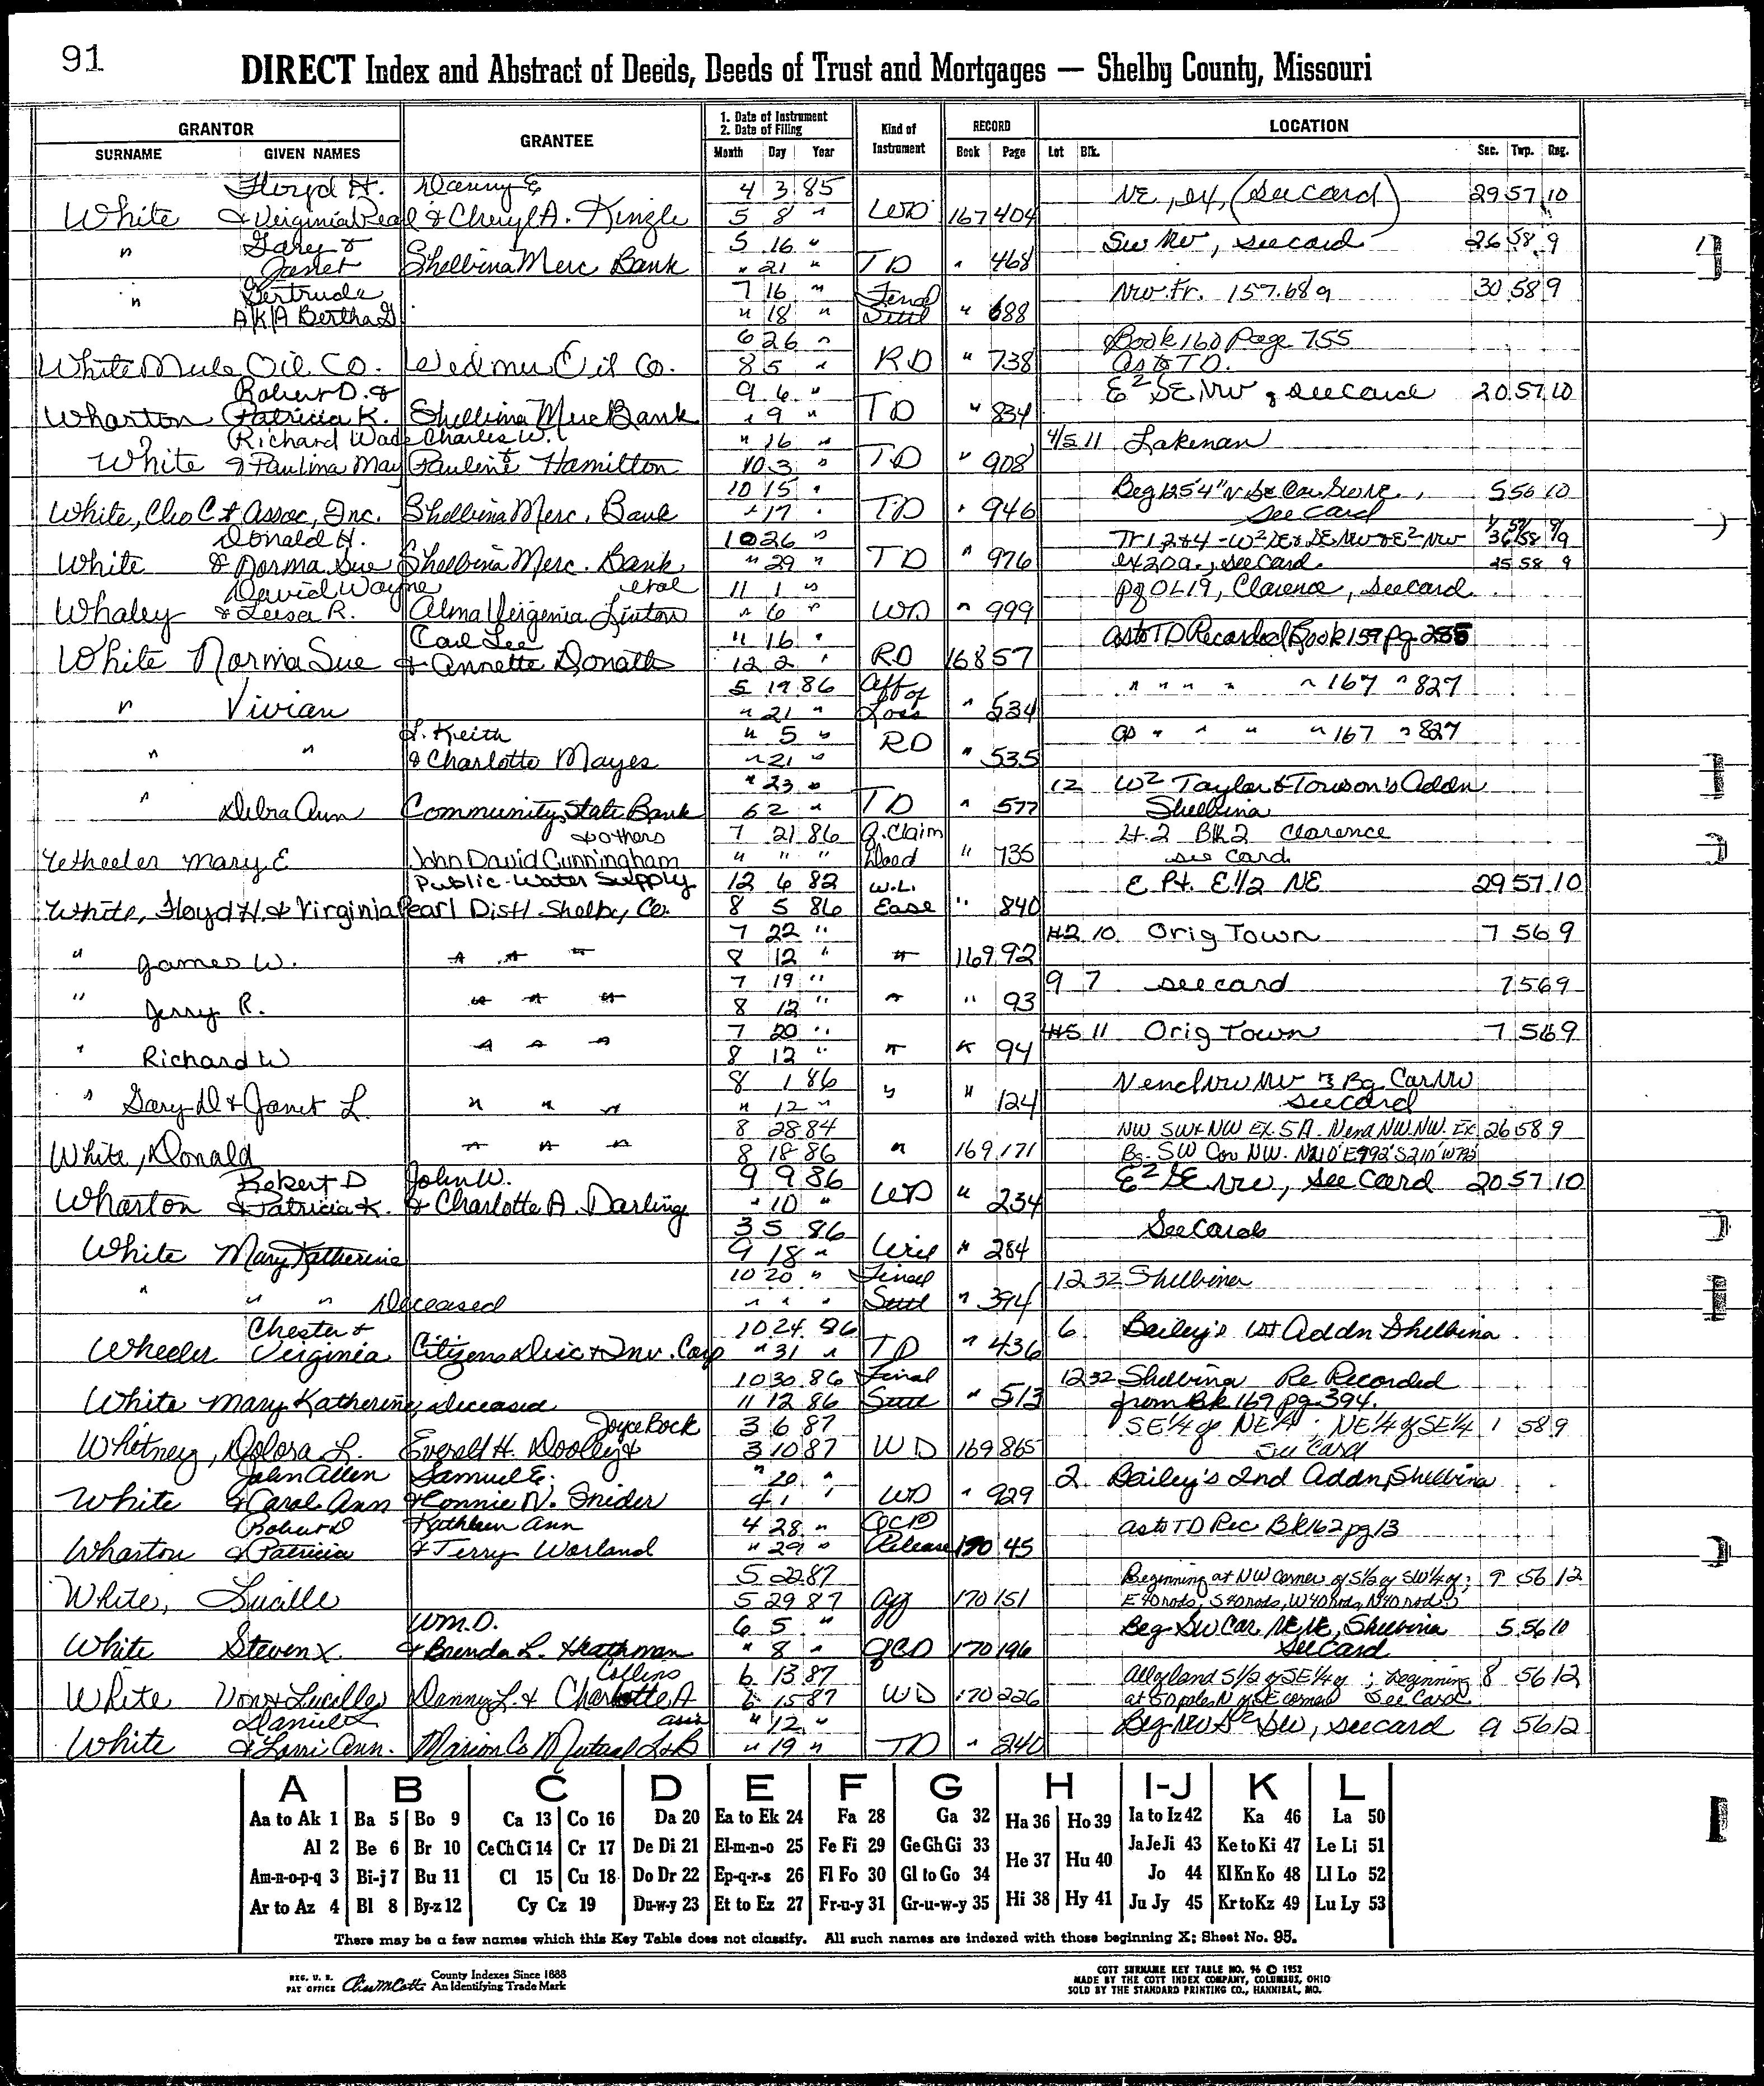 91
DIRECT Index and Abstract of Deeds, Deeds of Trust and Mortgages — Shelby County, Missouri
GRANTOR GRANTEE 1. Date of Instrument 2. Date of Filing Kind of Instrument RECORD LOCATION
SURNAME GIVEN NAMES Month Day Year Book Page Lot Blk. Sec. Twp. Rng.
Floyd H. Danny E 4 3 85 NE, ex, (see card) 29 57 10
White & Virginia Pearl & Cheryl A. Kinzle 5 8 " WD 167 404
" Gary & Shelbina Merc Bank 5 16 " TD " 468 SW NW, see card 26 58 9
Janet " 21 "
" Gertrude 7 16 " Final NW Fr. 157.68 a 30 58 9
A/K/A Bertha G " 18 " Settl " 688
6 26 " Book 160 Page 755
White Mule Oil Co. Wedmer Oil Co. 8 5 " RD " 738 As to TD.
Robert D. & 9 6 " E² SE NW, see card 20 57 10
Wharton Patricia K. Shelbina Merc Bank " 9 " TD " 834
Richard Wade Charles W. " 16 " 4/5 11 Lakenan
White & Paulina May Pauline Hamilton 10 3 " TD " 908
10 15 " Beg 125'4" N SE Cor SW NE, 5 56 10
White, Cleo C & Assoc, Inc. Shelbina Merc. Bank " 17 " TD " 946 see card
Donald H. 10 26 " Tr 1, 2 & 4 - W² SE & SE NW & E² NW
White & Norma Sue Shelbina Merc. Bank " 29 " TD " 976 ex 20a., see card. 25 58 9
David Wayne etal 11 1 " pg OL 19, Clarence, see card
Whaley & Leesa R. Alma Virginia Linton " 6 " WD " 999
Carl Lee " 16 " as to TD Recorded Book 159 pg 255
White Norma Sue & Annette Donath 12 2 " RD 168 57
5 19 86 Aff of " " " " " 167 " 827
" Vivian " 21 " Loss " 534
L. Keith " 5 " RD as " " " " 167 " 827
" " & Charlotte Mayes " 21 " " 535
" 23 " 12 W² Taylor & Towson's Addn
" Debra Ann Community State Bank 6 2 " TD " 577 Shelbina
& others 7 21 86 Q. Claim Lt. 2 Blk 2 Clarence
Wheeler Mary E John David Cunningham " " " Deed " 735 see card
Public Water Supply 12 6 82 W.L. E Pt. E 1/2 NE 29 57 10
White, Floyd H. & Virginia Pearl Dist 1 Shelby Co. 8 5 86 Ease " 840
7 22 " #2 10 Orig Town 7 56 9
" James W. " " " 8 12 " " 169 92
7 19 " 9 7 see card 7 56 9
" Jerry R. " " " 8 12 " " " 93
7 20 " #5 11 Orig Town 7 56 9
" Richard W " " " 8 12 " " " 94
8 1 86 N end NW NW & Bg Cor NW
" Gary D & Janet L. " " " " 12 " " " 124 see card
8 28 84 NW SW & NW EX. 5 A. N end NW. NW. EX 26 58 9
White, Donald " " " 8 18 86 " 169 171 Bg. SW Cor NW. N 210' E 992' S 210' W 992'
Robert D John W. 9 9 86 E² SE NW, see card 20 57 10
Wharton & Patricia K. & Charlotte A. Darling " 10 " WD " 234
3 5 86 See Card
White Mary Katherine 9 18 " Will " 284
10 20 " Final 12 32 Shelbina
" " " Deceased " " " Settl " 394
Chester & 10 24 86 6 Bailey's 1st Addn Shelbina
Wheeler Virginia Citizens Disc & Inv. Corp " 31 " TD " 436
10 30 86 Final 12 32 Shelbina Re Recorded
White Mary Katherine, deceased 11 12 86 Settl " 513 from Bk 169 pg. 394.
Joyce Bock 3 6 87 SE 1/4 of NE 1/4; NE 1/4 of SE 1/4 1 58 9
Whitney, Dolora L. Everett H. Dooley & 3 10 87 WD 169 865 see card
John Allen Samuel E. " 20 " 2 Bailey's 2nd Addn, Shelbina
White & Carol Ann & Connie N. Snider 4 1 " WD " 929
Robert D Kathleen Ann 4 28 " QCD as to TD Rec Bk 162 pg 13
Wharton & Patricia & Terry Worland " 29 " Release 170 45
5 22 87 Beginning at NW corner of S 1/2 of SW 1/4 of; 9 56 12
White, Lucille 5 29 87 Aff 170 151 E 40 rods, S 40 rods, W 40 rods, N 40 rods
Wm. O. 6 5 " Beg SW Cor NE NE, Shelbina 5 56 10
White Steven X. & Brenda L. Heathman " 8 " QCD 170 196 see card
Collins 6 13 87 All of land S 1/2 of SE 1/4 of; beginning 8 56 12
White Von & Lucille Danny L. & Charlotte A 6 15 87 WD 170 226 at 50 poles N of SE corner See Card
Daniel L assn " 12 " Beg NW S² SW, see card 9 56 12
White & Lorri Ann. Marion Co Mutual L & B " 19 " TD " 240
A B C D E F G H I-J K L
Aa to Ak 1 Ba 5 Bo 9 Ca 13 Co 16 Da 20 Ea to Ek 24 Fa 28 Ga 32 Ha 36 Ho 39 Ia to Iz 42 Ka 46 La 50
Al 2 Be 6 Br 10 Ce Ch Ci 14 Cr 17 De Di 21 El-m-n-o 25 Fe Fi 29 Ge Gh Gi 33 He 37 Hu 40 Ja Je Ji 43 Ke to Ki 47 Le Li 51
Am-n-o-p-q 3 Bi-j 7 Bu 11 Cl 15 Cu 18 Do Dr 22 Ep-q-r-s 26 Fl Fo 30 Gl to Go 34 Jo 44 Kl Kn Ko 48 Ll Lo 52
Ar to Az 4 Bl 8 By-z 12 Cy Cz 19 Du-w-y 23 Et to Ez 27 Fr-u-y 31 Gr-u-w-y 35 Hi 38 Hy 41 Ju Jy 45 Kr to Kz 49 Lu Ly 53
There may be a few names which this Key Table does not classify. All such names are indexed with those beginning X; Sheet No. 95.
REG. U. S. PAT OFFICE County Indexes Since 1888 An Identifying Trade Mark
COTT SURNAME KEY TABLE NO. 96 © 1952
MADE BY THE COTT INDEX COMPANY, COLUMBUS, OHIO
SOLD BY THE STANDARD PRINTING CO., HANNIBAL, MO.